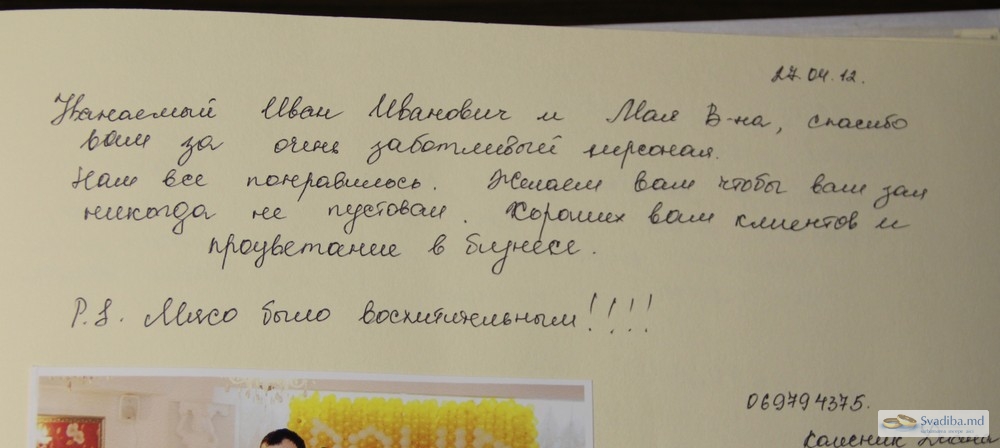 27.04.12.
Уважаемый Иван Иванович и Мая В-на, спасибо
вам за очень заботливый персонал.
Нам все понравилось. Желаем вам чтобы ваш зал
никогда не пустовал. Хороших вам клиентов и
процветание в бизнесе.
P.S. Мясо было восхитительным!!!!
069794375.
Svadiba.md
Колесник